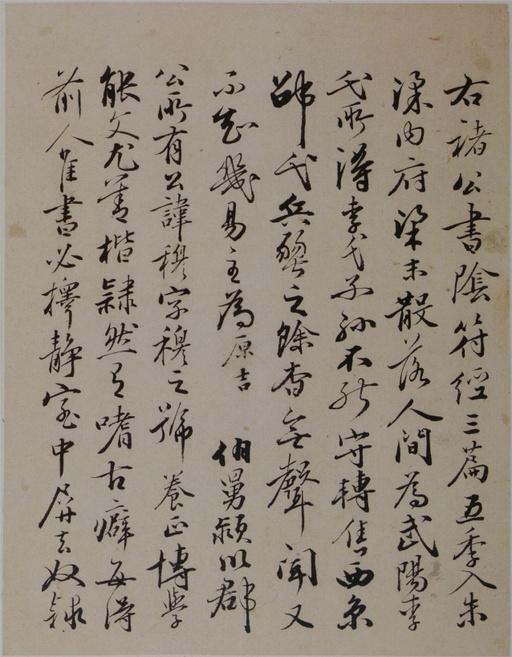 右褚公書陰符經三篇五季入朱
梁内府梁末散落人間為武陽李
氏所得李氏子孫不能守轉售西京
邵氏兵燹之餘杳無聲聞又
不知幾易主為原吉 伯舅潁川郡
公所有公諱穆字穆之號養正博學
能文尤善楷隸然有嗜古癖每得
前人隹書必擇靜室中屏去奴隸